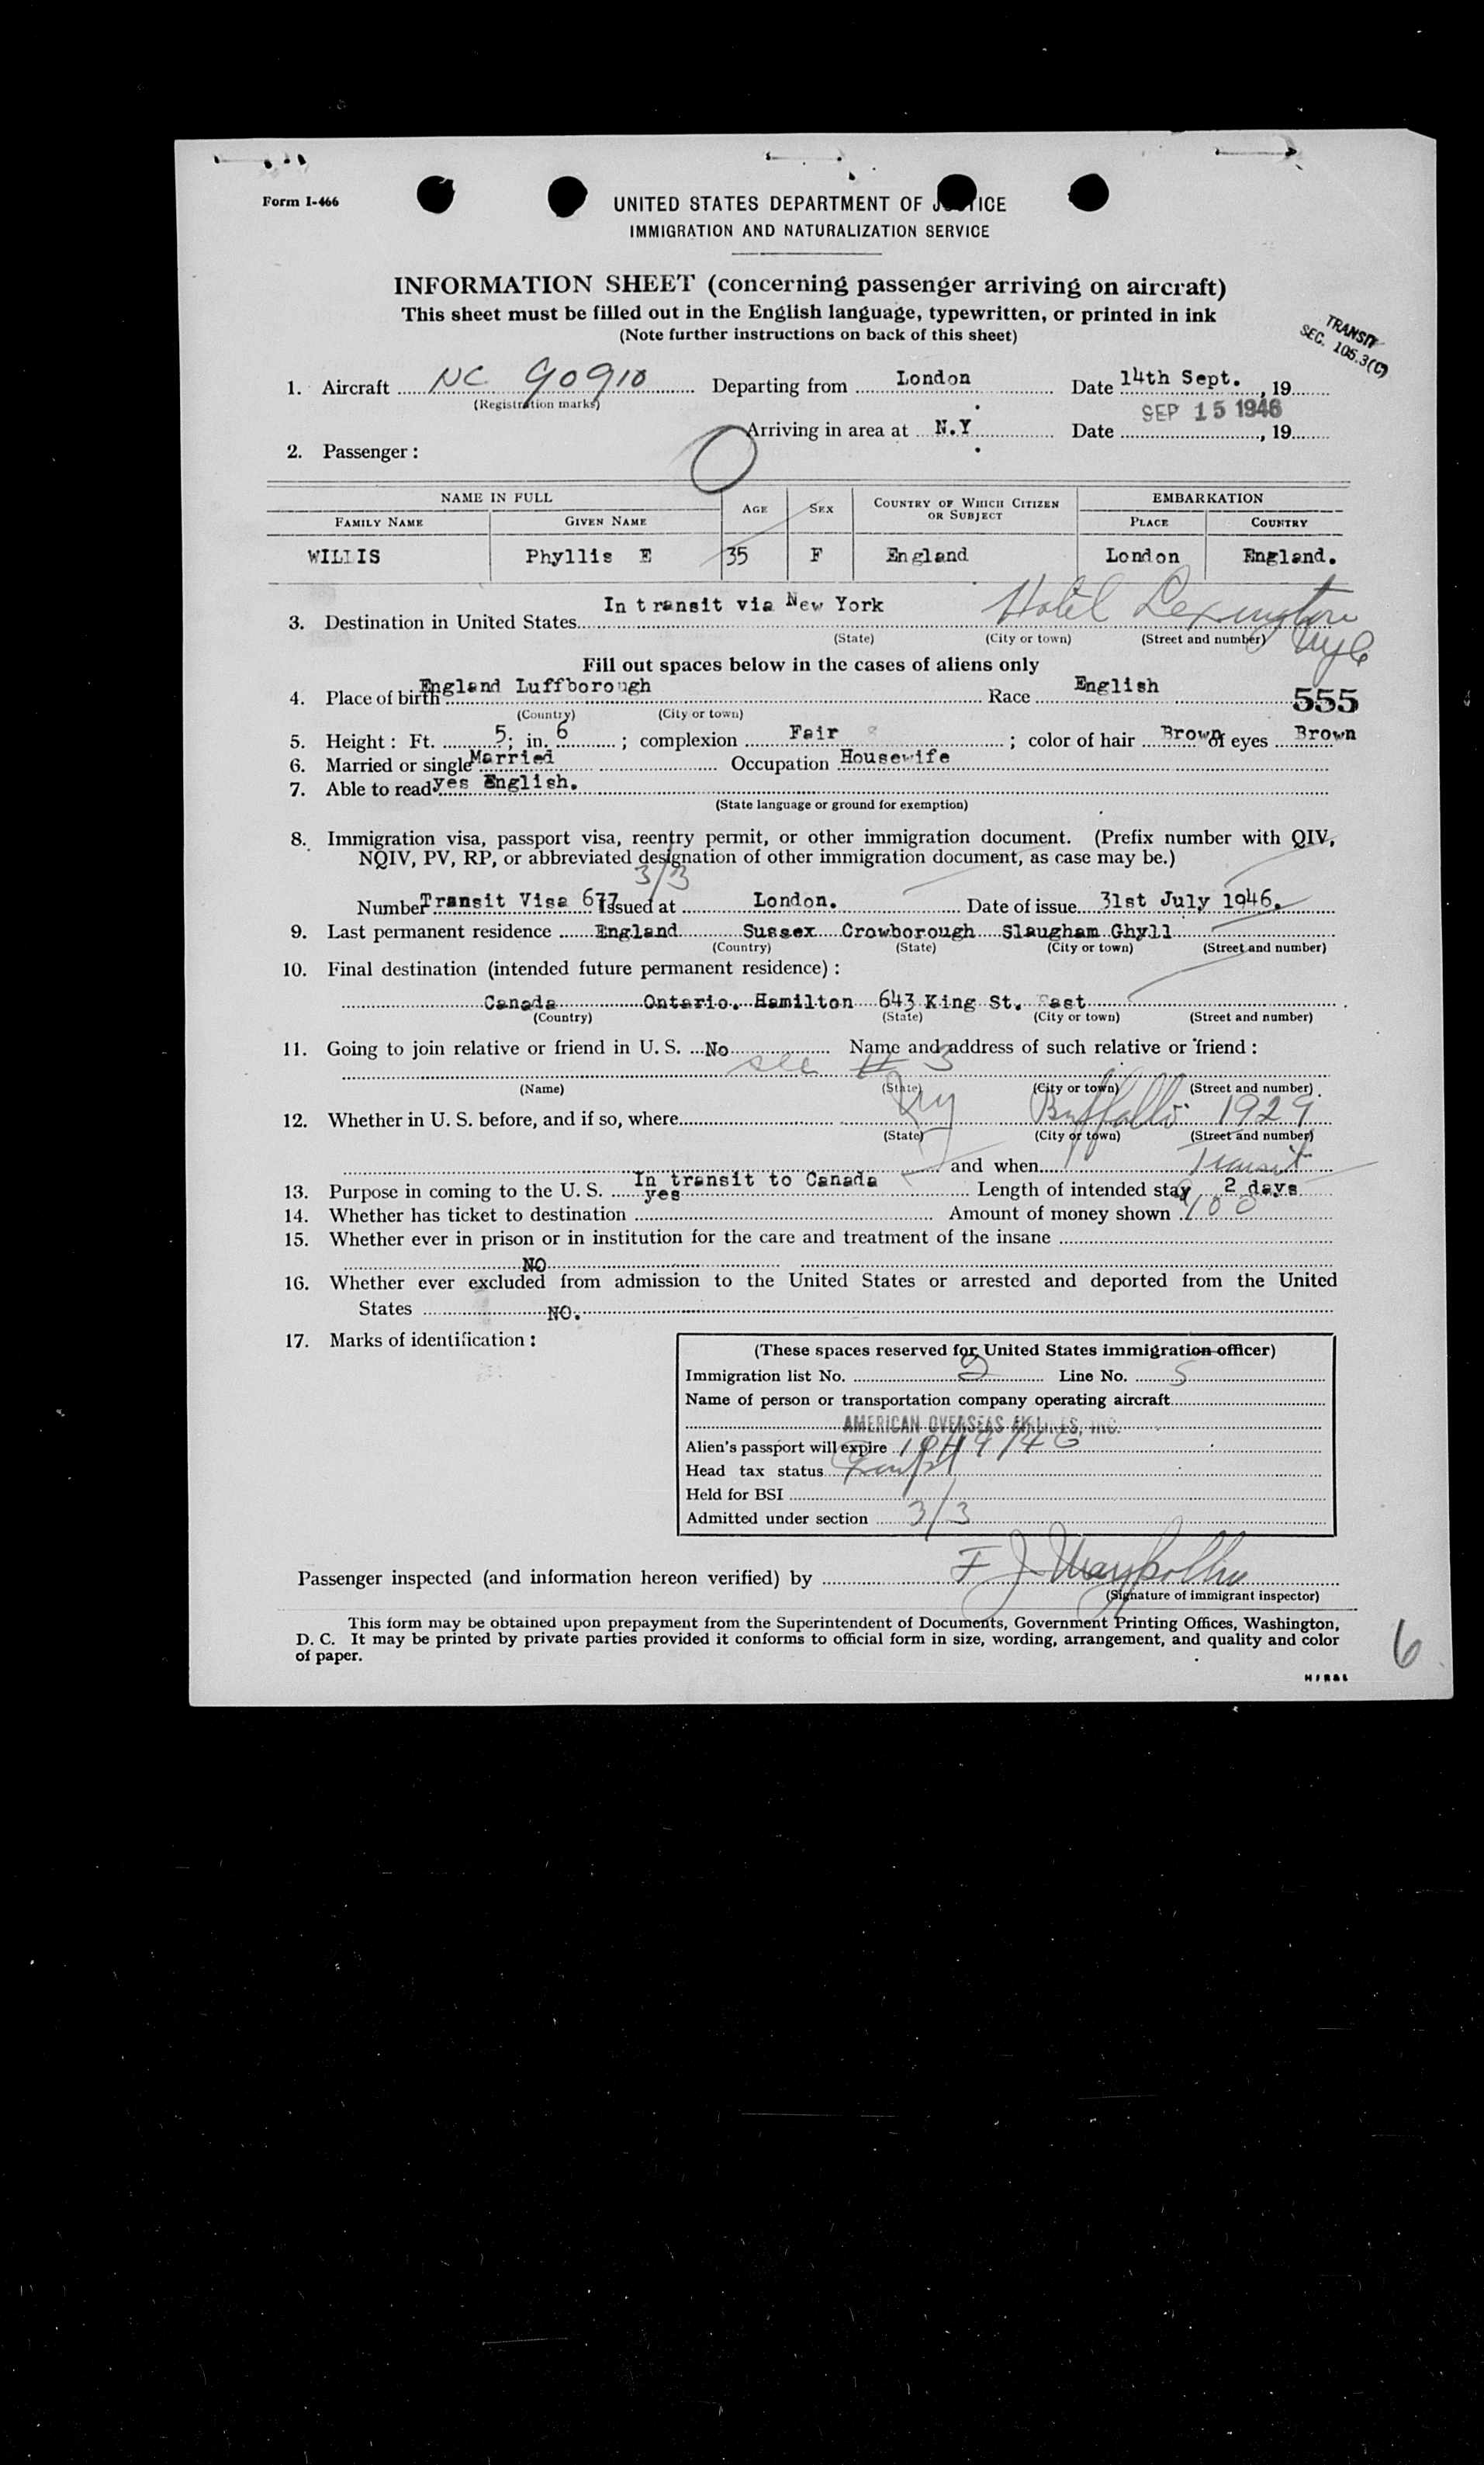 Form I-466
UNITED STATES DEPARTMENT OF JUSTICE
IMMIGRATION AND NATURALIZATION SERVICE
INFORMATION SHEET (concerning passenger arriving on aircraft)
This sheet must be filled out in the English language, typewritten, or printed in ink
(Note further instructions on back of this sheet)
TRANSIT
SEC. 105.3(C)
1. Aircraft NC 90910 Departing from London Date 14th Sept. , 19
(Registration marks)
SEP 15 1946
Arriving in area at N.Y. Date , 19
2. Passenger :
NAME IN FULL AGE SEX COUNTRY OF WHICH CITIZEN OR SUBJECT EMBARKATION
FAMILY NAME GIVEN NAME PLACE COUNTRY
WILLIS Phyllis E 35 F England London England.
3. Destination in United States In transit via New York Hotel Lexington
(State) (City or town) (Street and number) NYC
Fill out spaces below in the cases of aliens only
4. Place of birth England Luffborough Race English 555
(Country) (City or town)
5. Height : Ft. 5; in. 6 ; complexion Fair ; color of hair Brown of eyes Brown
6. Married or single Married Occupation Housewife
7. Able to read yes English.
(State language or ground for exemption)
8. Immigration visa, passport visa, reentry permit, or other immigration document. (Prefix number with QIV,
NQIV, PV, RP, or abbreviated designation of other immigration document, as case may be.)
3/3
Number Transit Visa 677 Issued at London. Date of issue 31st July 1946.
9. Last permanent residence England Sussex Crowborough Slaugham Ghyll
(Country) (State) (City or town) (Street and number)
10. Final destination (intended future permanent residence) :
Canada Ontario. Hamilton 643 King St. East
(Country) (State) (City or town) (Street and number)
11. Going to join relative or friend in U. S. No Name and address of such relative or friend :
see # 3
(Name) (State) (City or town) (Street and number)
12. Whether in U. S. before, and if so, where NY Buffalo 1929
(State) (City or town) (Street and number)
and when Transit
13. Purpose in coming to the U. S. In transit to Canada Length of intended stay 2 days
14. Whether has ticket to destination yes Amount of money shown 100
15. Whether ever in prison or in institution for the care and treatment of the insane
NO
16. Whether ever excluded from admission to the United States or arrested and deported from the United
States NO.
17. Marks of identification :
(These spaces reserved for United States immigration officer)
Immigration list No. 2 Line No. 5
Name of person or transportation company operating aircraft
AMERICAN OVERSEAS AIRLINES, INC.
Alien's passport will expire
Head tax status
Held for BSI
Admitted under section 3/3
Passenger inspected (and information hereon verified) by F J
(Signature of immigrant inspector)
This form may be obtained upon prepayment from the Superintendent of Documents, Government Printing Offices, Washington,
D. C. It may be printed by private parties provided it conforms to official form in size, wording, arrangement, and quality and color
of paper.
6